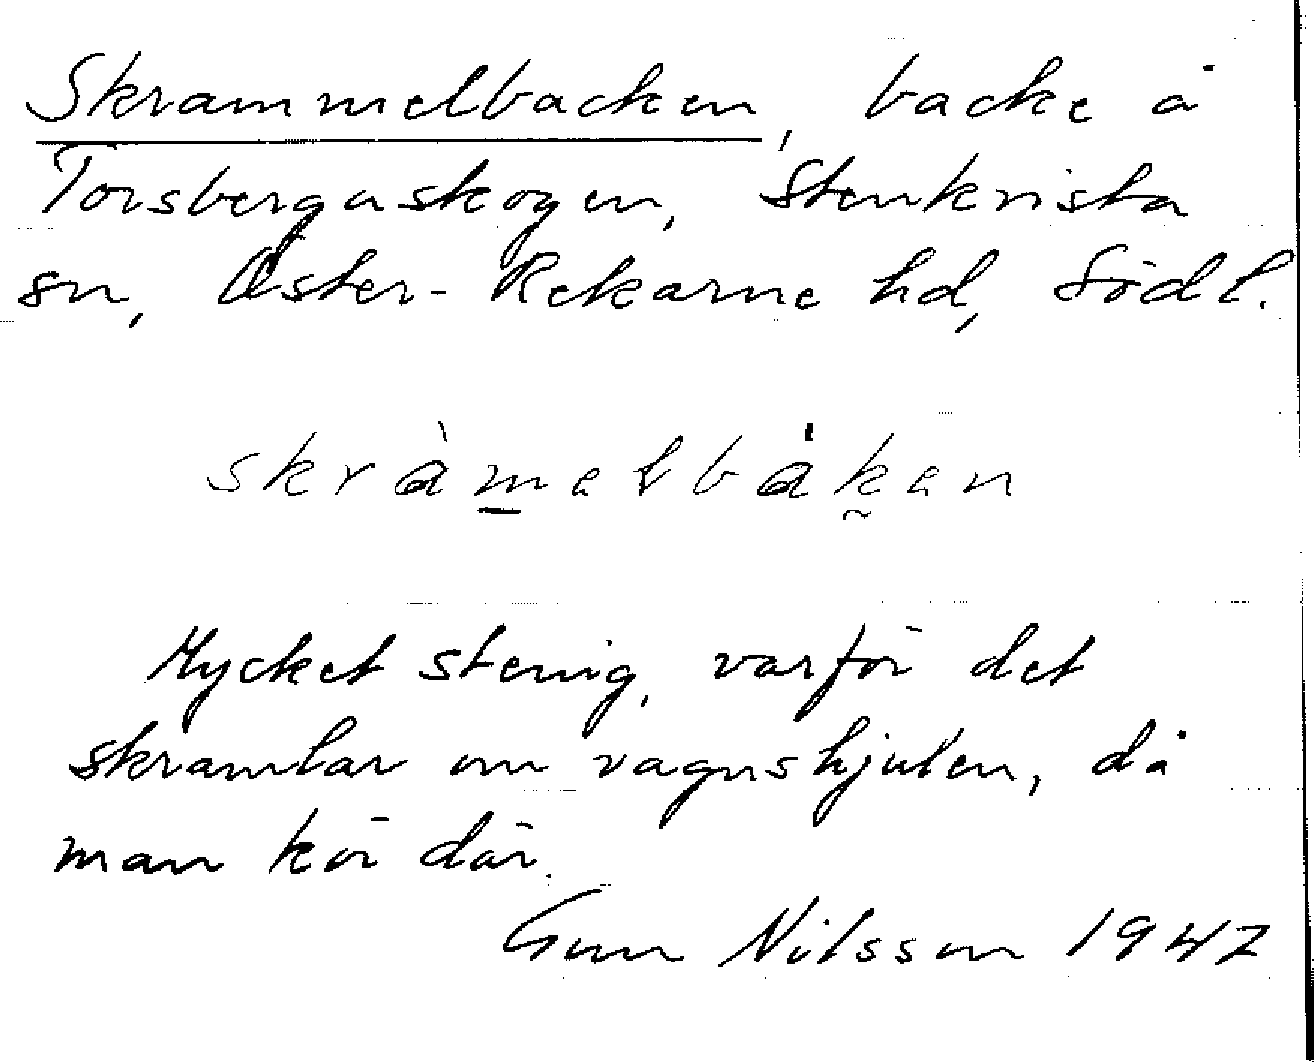 Skrammelbacken, backe å
Torsbergaskogen, Stenkvista
sn, Öster-Rekarne hd, Södl.
skràmelbáken
Mycket stenig, varför det
skramlar om vagnshjulen, då
man kör där.
Gun Nilsson 1947